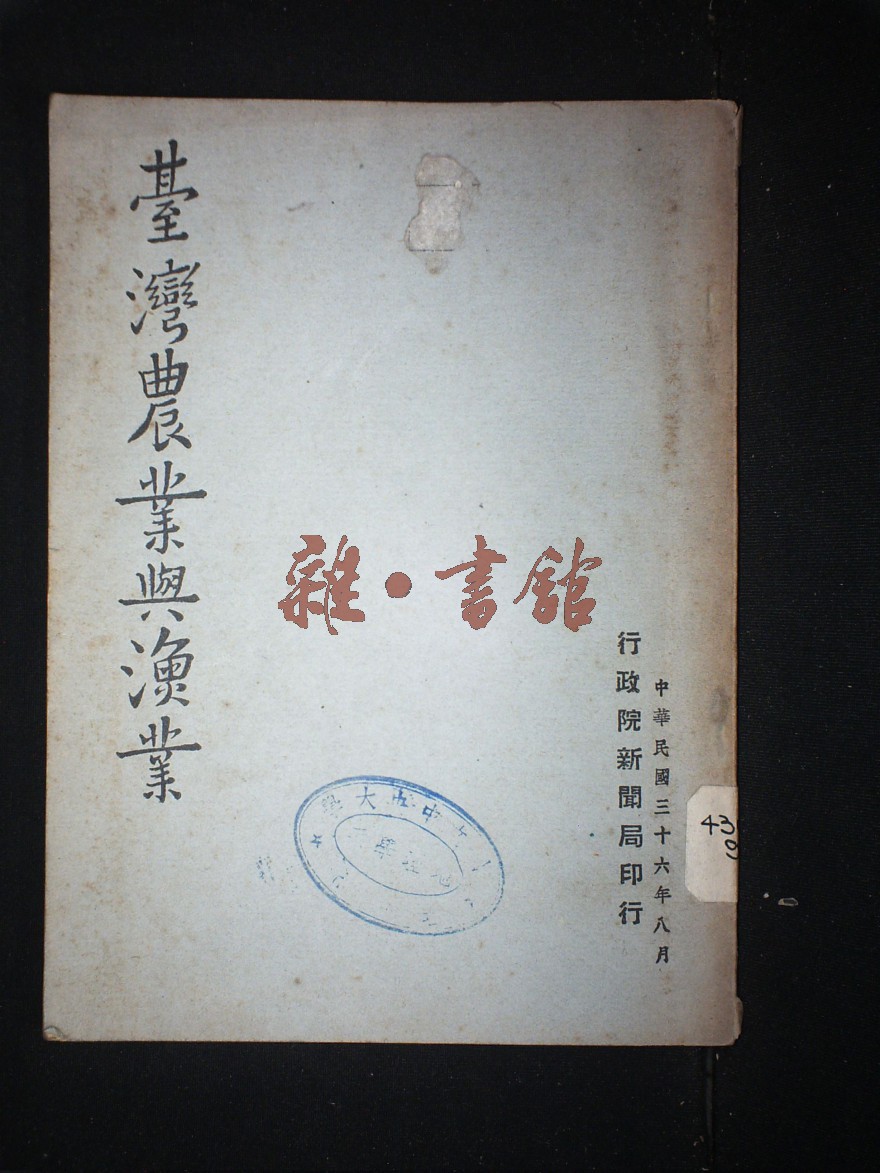 臺灣農業與漁業
雜・書館
中華民國三十六年八月
行政院新聞局印行
43